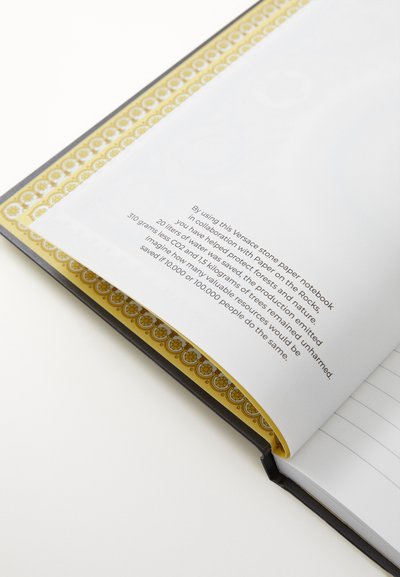 By using this Versace stone paper notebook
in collaboration with Paper on the Rocks,
you have helped protect forests and nature.
20 liters of water was saved, the production emitted
310 grams less CO2 and 1,5 kilograms of trees remained unharmed.
Imagine how many valuable resources would be
saved if 10.000 or 100.000 people do the same.